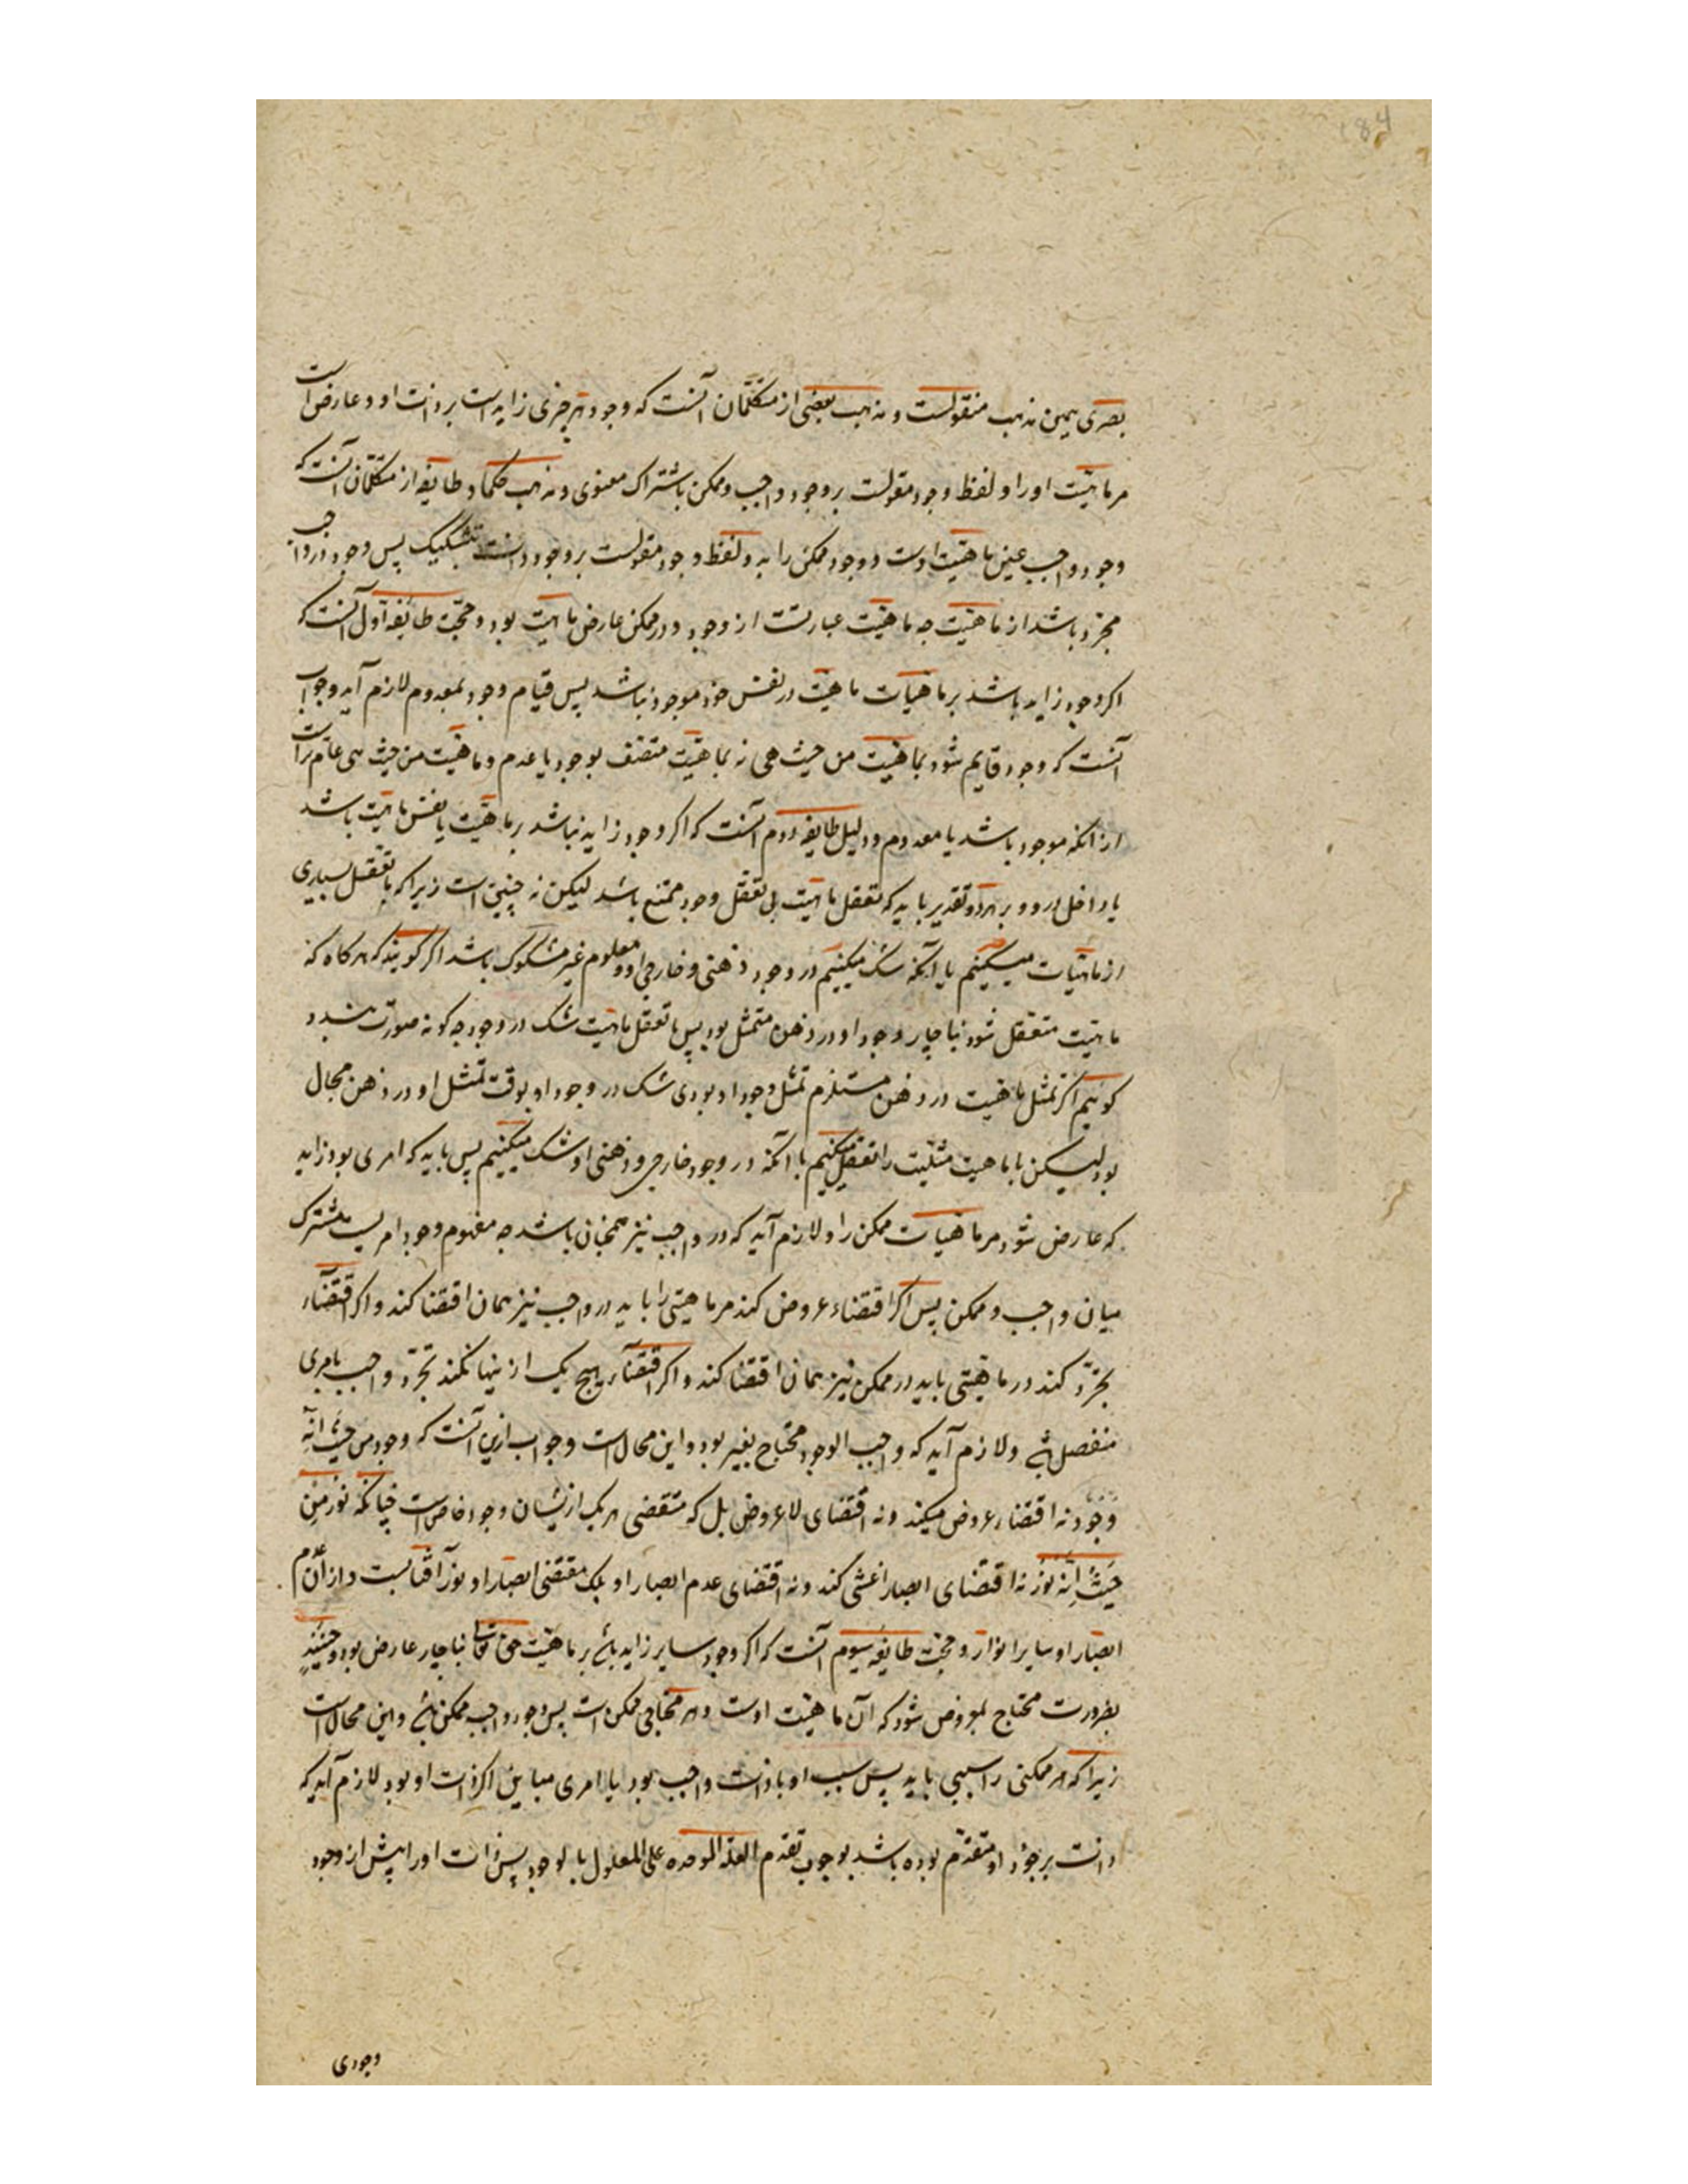 184
بصری همین مذهب منقولست و مذهب بعضی از متکلمان آنست که وجود هر چیزی زاید است بر ذات او و عارض است
مر ماهیت او را و لفظ وجود مقولست بر وجود واجب و ممکن باشتراک معنوی و مذهب حکما و طایفه از متکلمان آنست که
وجود واجب عین ماهیت اوست و وجود ممکن زاید و لفظ وجود مقولست بر وجودات بتشکیک پس وجود در واجب
مجرد باشد از ماهیت چه ماهیت عبارتست از وجود و در ممکن عارض ماهیت بود و حجت طایفه اول آنست که
اگر وجود زاید باشد بر ماهیات ماهیت در نفس خود موجود نباشد پس قیام وجود بمعدوم لازم آید و جواب
آنست که وجود قایم شود بماهیت من حیث هی نه بماهیت متصف بوجود یا عدم و ماهیت من حیث هی عام تر است
از انکه موجود باشد یا معدوم و دلیل طایفه دوم آنست که اگر وجود زاید نباشد بر ماهیت یا نفس ماهیت باشد
یا داخل در و و بر هر دو تقدیر باید که تعقل ماهیت بی تعقل وجود ممتنع باشد لیکن نه چنین است زیرا که ما تعقل بسیاری
از ماهیات میکنیم با آنکه شک میکنیم در وجود ذهنی و خارجی او و معلوم غیر مشکوک باشد اگر گویند که هر گاه که
ماهیت متعقل شود ناچار وجود او در ذهن متمثل بود پس با تعقل ماهیت شک در وجود چه گونه صورت بندد
گوییم اگر تمثل ماهیت در ذهن مستلزم تمثل وجود او بودی شک در وجود او بوقت تمثل او در ذهن محال
بود لیکن ما ماهیت مثلث را تعقل میکنیم با آنکه در وجود خارجی و ذهنی او شک میکنیم پس باید که امری بود زاید
که عارض شود مر ماهیات ممکن را و لازم آید که در واجب نیز همچنان باشد چه مفهوم وجود امریست مشترک
میان واجب و ممکن پس اگر اقتضاء عروض کند مر ماهیتی را باید در واجب نیز همان اقتضا کند و اگر اقتضاء
تجرد کند در ماهیتی باید در ممکن نیز همان اقتضا کند و اگر اقتضاء هیچ یک ازینها نکند تجرد واجب بامری
منفصل و لازم آید که واجب الوجود محتاج بغیر بود و این محال است و جواب ازین آنست که وجود من حیث انه
وجود نه اقتضاء عروض میکند و نه اقتضای لا عروض بل که مقتضی هر یک ازیشان وجود خاص است چنانکه نور من
حیث انه نور نه اقتضای ابصار اعشی کند و نه اقتضای عدم ابصار او بلک مقتضی ابصار او نور آفتابست و از آن عدم
ابصار او سایر انوار و حجت طایفه سیوم آنست که اگر وجود سایر زاید باشد بر ماهیت حق تعالی ناچار عارض بود و حینئذ
بضرورت محتاج بمعروض شود که آن ماهیت اوست و هر محتاجی ممکن است پس وجود واجب ممکن باشد و این محال است
زیرا که هر ممکنی را سببی باید پس سبب او یا ذات واجب بود یا امری مباین اگر ذات او بود لازم آید که
ذات بر وجود او متقدم بوده باشد بوجوب تقدم العلة الموجده علی المعلول بالوجود پس ذات او را پیش از وجود
وجودی